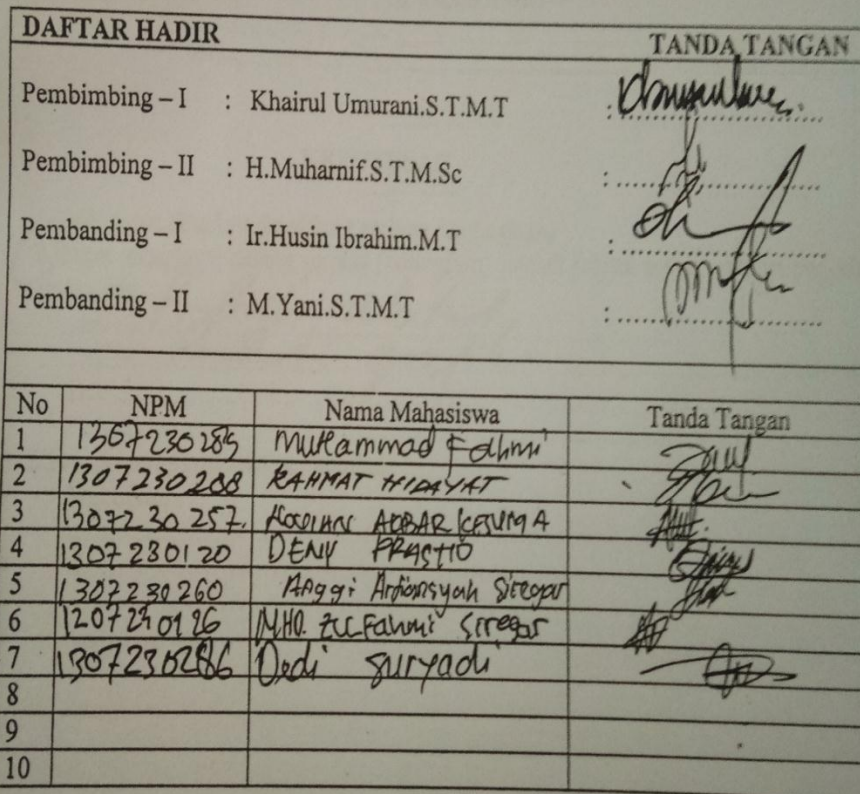 DAFTAR HADIR TANDA TANGAN
Pembimbing – I : Khairul Umurani.S.T.M.T :
Pembimbing – II : H.Muharnif.S.T.M.Sc :
Pembanding – I : Ir.Husin Ibrahim.M.T :
Pembanding – II : M.Yani.S.T.M.T :
No NPM Nama Mahasiswa Tanda Tangan
1 1307230285 Muhammad Fahmi
2 1307230288 RAHMAT HIDAYAT
3 1307230257. AKBAR KESUMA
4 1307230120 DENY PRASTIO
5 1307230260 Anggi Ardiansyah Siregar
6 1207230126 MHD. Zulfahmi Siregar
7 1307230286 Dedi Suryadi
8
9
10